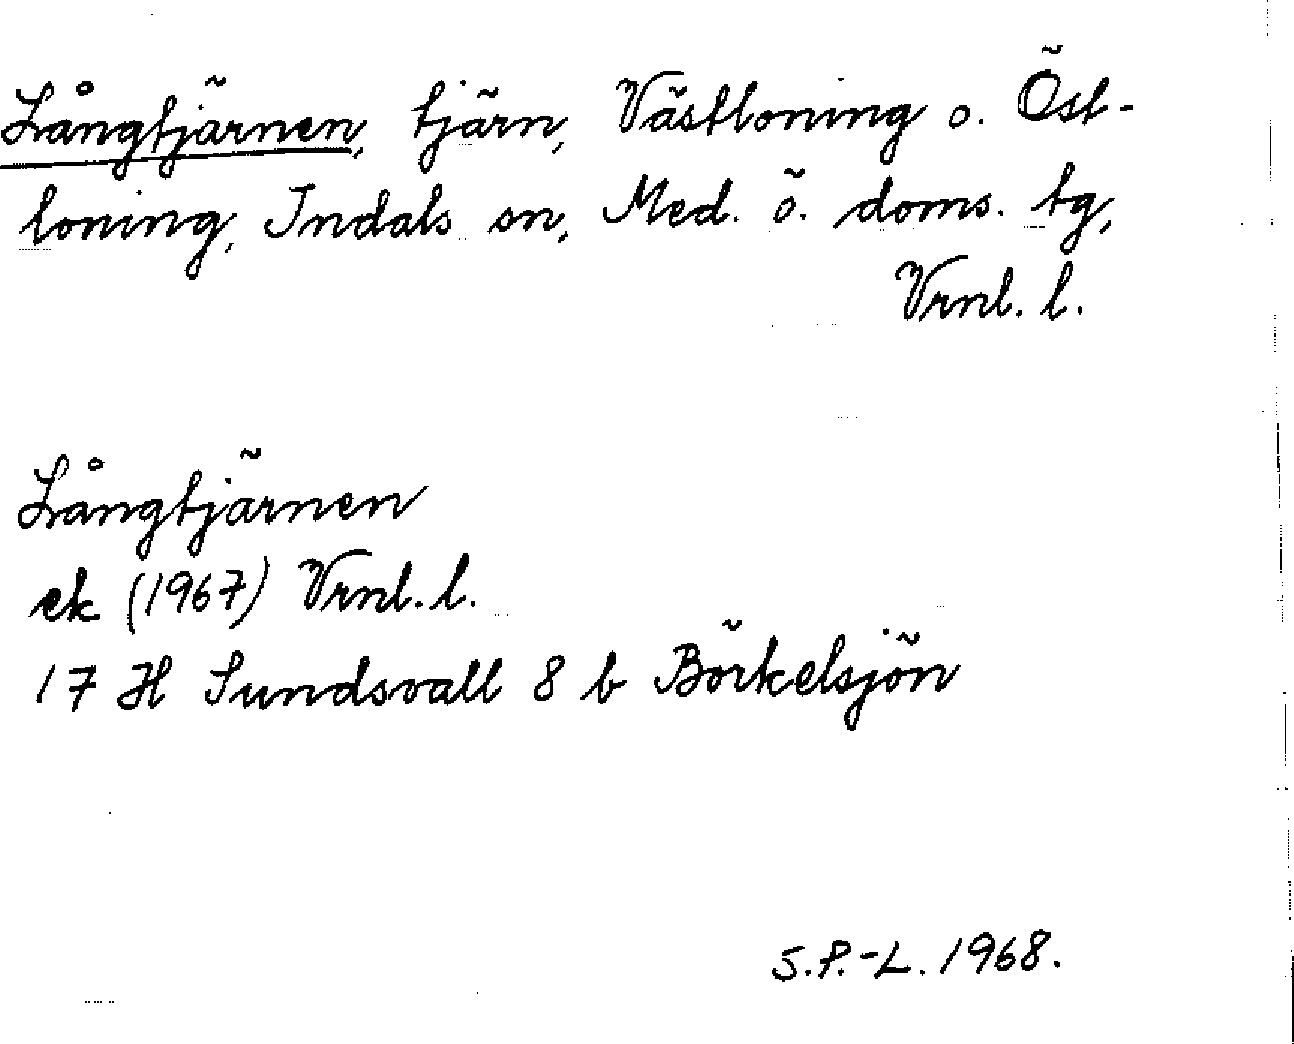 Långtjärnen, tjärn, Västloning o. Öst-
loning, Indals sn, Med. ö. doms. tg,
Vrnl. l.
Långtjärnen
ek (1967) Vrnl. l.
17 H Sundsvall 8 b Börkelsjön
S.P.-L. 1968.